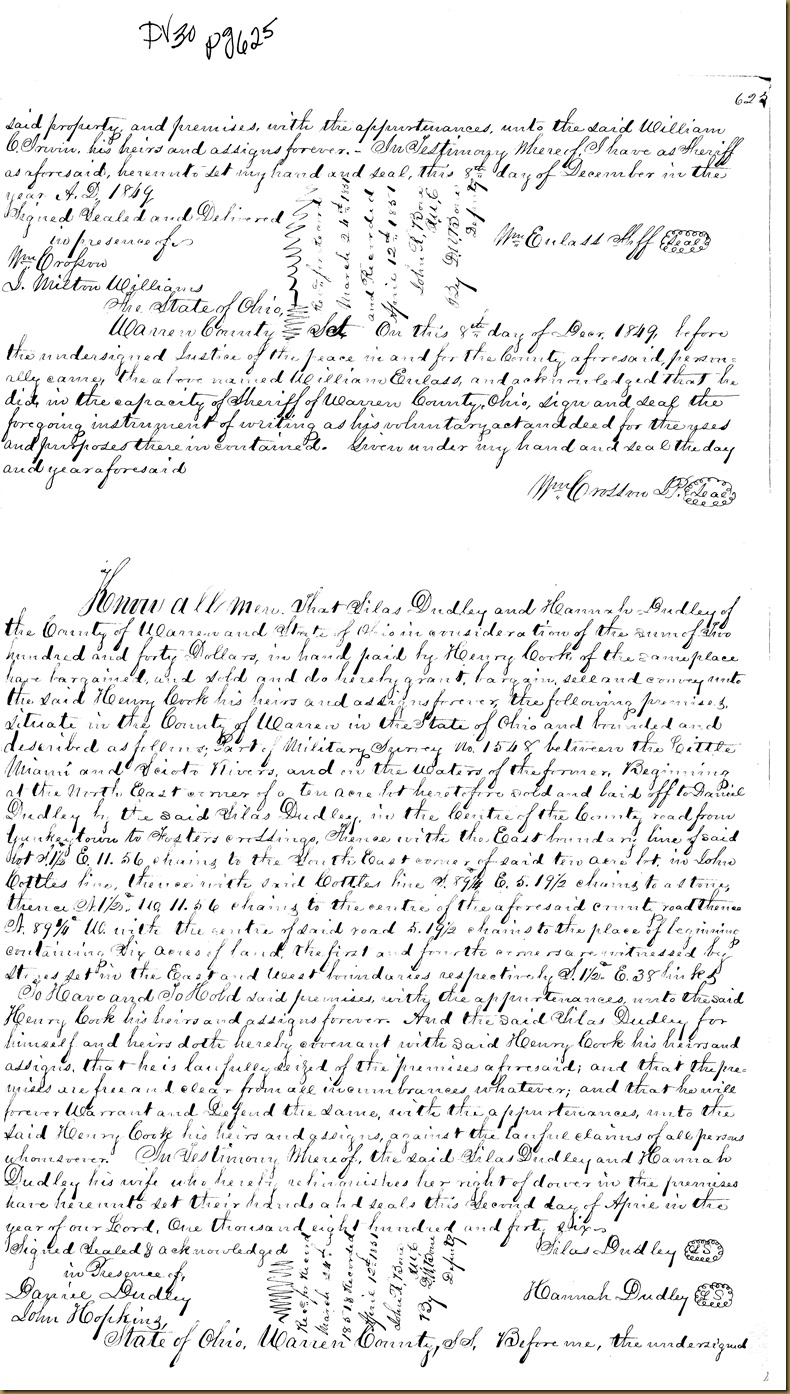 DV30 pg625
625
said property, and premises, with the appurtenances, unto the said William
C. Irwin, his heirs and assigns forever.- In Testimony Whereof, I have as Sheriff
as aforesaid, hereunto set my hand and seal, this 8th day of December in the
year A.D. 1849
Signed Sealed and Delivered
in presence of
Wm Crosson
J. Milton Williams
Rec. for Record
March 24th 1851
and Recorded
April 12th 1851
John R, Bone
By
Deputy
Wm Eulass Shff Seal
The State of Ohio,
Warren County Sct. On this 8th day of Decr, 1849, before
the undersigned Justice of the peace in and for the County aforesaid, person-
ally came, the above named William Eulass, and acknowledged that he
did, in the capacity of Sheriff of Warren County, Ohio, sign and seal the
foregoing instrument of writing as his voluntary act and deed for the uses
and purposes therein contained. Given under my hand and seal the day
and year aforesaid
Wm Crosson J.P. Seal
Know all men. That Silas Dudley and Hannah Dudley of
the County of Warren and State of Ohio in consideration of the sum of Two
hundred and forty Dollars, in hand paid by Henry Cook of the same place
have bargained, and sold and do hereby grant, bargain, sell and convey unto
the said Henry Cook his heirs and assigns forever, the following premises,
situate in the County of Warren in the State of Ohio and bounded and
described as follows; Part of Military Survey No. 1548 between the Little
Miami and Scioto Rivers, and on the Waters of the former, Beginning
at the North East corner of a ten acre lot heretofore sold and laid off to Daniel
Dudley by the said Silas Dudley, in the Centre of the County road from
Yankeytown to Fosters crossings, Thence with the East boundary line of said
lot S. 1½° E. 11.56 chains to the South East corner of said ten acre lot, in John
Cottles line, thence with said Cottles line S. 89¼ E. 5.19½ chains to a stone,
thence N. 1½° W. 11.56 chains to the centre of the aforesaid county road thence
N. 89¼° W. with the centre of said road 5.19½ chains to the place of beginning
containing Six acres of land, the first and fourth corners are witnessed by
stones set in the East and West boundaries respectively S. 1½° E. 38 links
To Have and To Hold said premises, with the appurtenances, unto the said
Henry Cook his heirs and assigns forever. And the said Silas Dudley for
himself and heirs doth hereby covenant with said Henry Cook his heirs and
assigns, that he is lawfully seized of the premises aforesaid; and that the pre-
mises are free and clear from all incumbrances whatever; and that he will
forever Warrant and Defend the same, with the appurtenances, unto the
said Henry Cook his heirs and assigns, against the lawful claims of all persons
whomsoever. In Testimony Whereof, the said Silas Dudley and Hannah
Dudley his wife who hereby relinquishes her right of dower in the premises
have hereunto set their hands and seals this Second day of April in the
year of our Lord, One thousand eight hundred and forty six
Signed Sealed & acknowledged
in Presence of,
Daniel Dudley
John Hopkins,
Rec. for Record
March 24th
1851 & Recorded
April 12th 1851
John R, Bone
By
Deputy
Silas Dudley LS
Hannah Dudley LS
State of Ohio, Warren County, SS, Before me, the undersigned